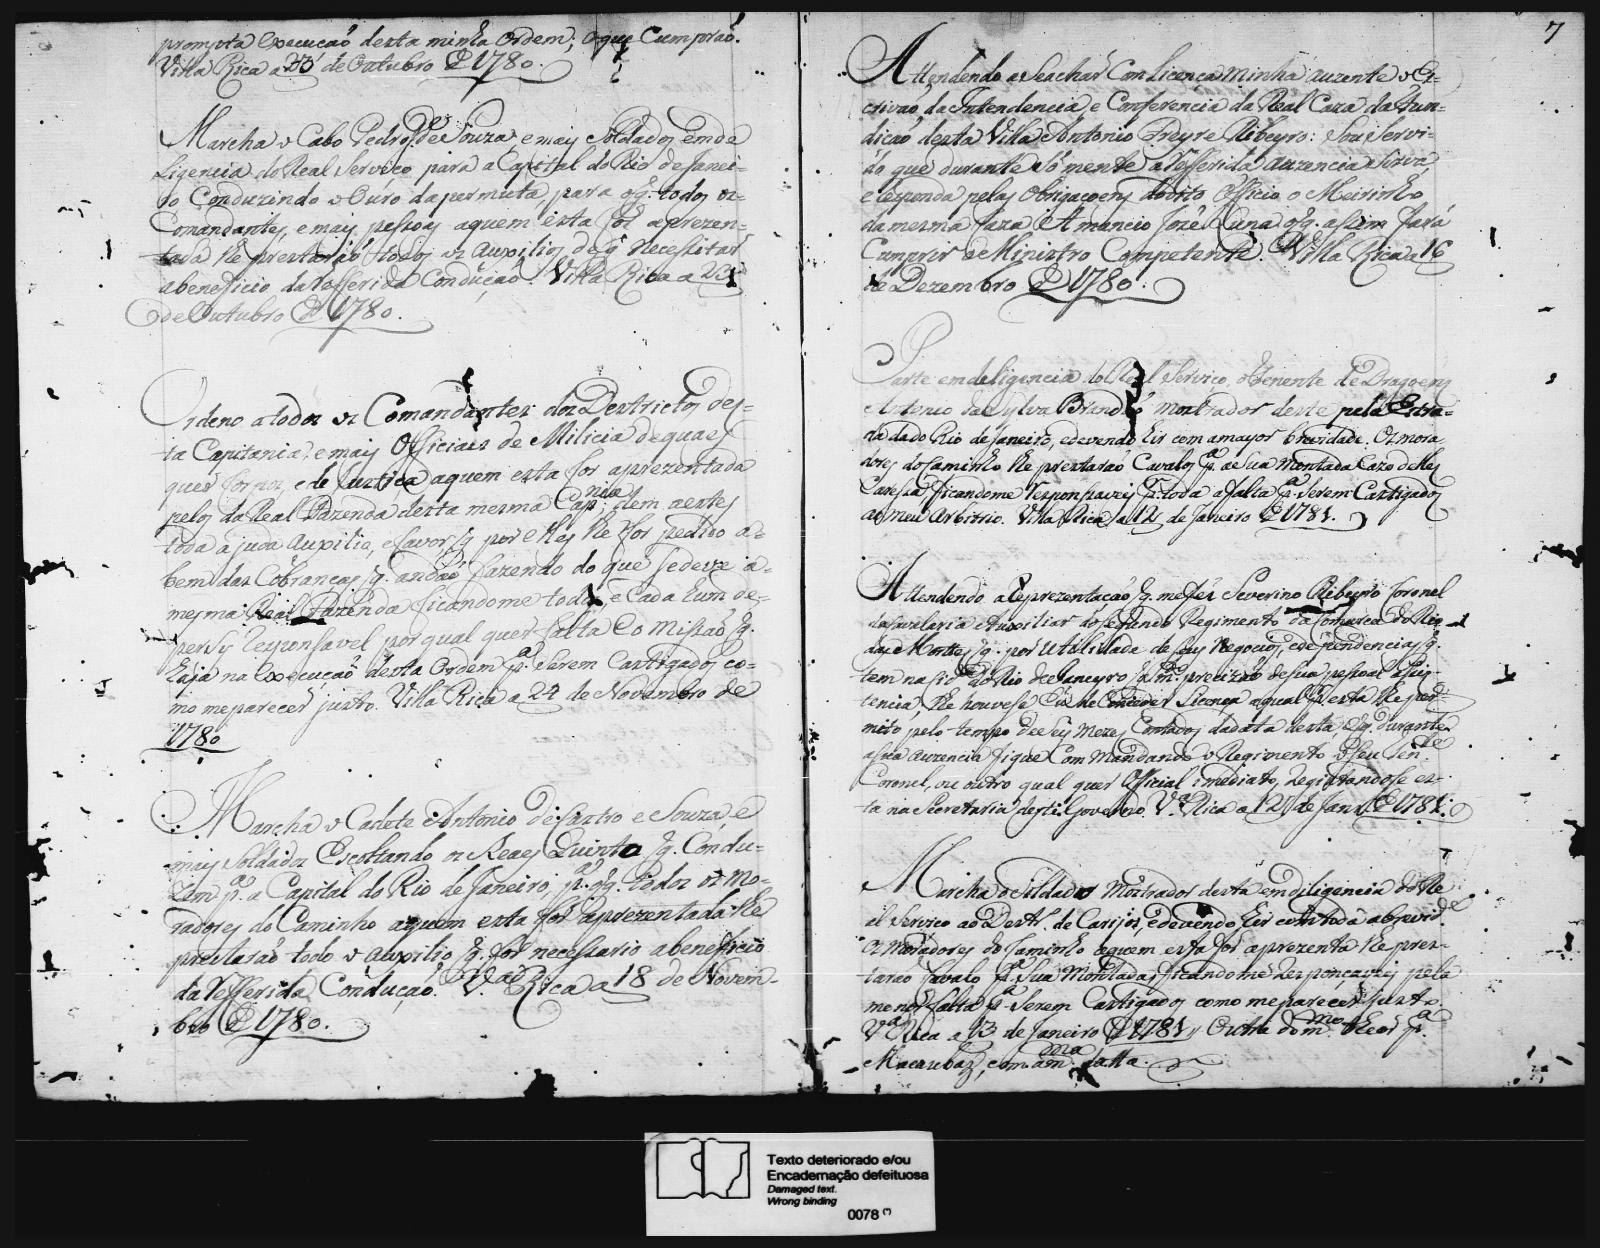 prompta execução desta minha ordem; o que Cumprão.
Villa Rica a 23 de Outubro D 1780.
Marcha o Cabo Pedro de Souza, e mais Soldados em de
Ligencia do Real Serviço para a Capital do Rio de Janei-
ro Conduzindo o Ouro da permuta, para o q. todos os
Comandantes, e mais pessoas aquem esta for aprezen-
tada lhe prestarão todos os auxilios de q. necessitar
abeneficio da Refferida Condução. Villa Rica a 23
de Outubro D 1780.
Ordeno atodos os Comandantes dos Destrictos des-
ta Capitania, e mais Officiaes de Milicia de quaes
quer Corpos, e de Justiça aquem esta for aprezentada
pelos da Real Fazenda desta mesma Cap.nia, dem aestes
toda ajuda auxilio, e favor, q. por elles lhe for pedido a-
bem das Cobranças q. andão fazendo do que sedeve á
mesma Real Fazenda ficandome todos, e Cada hum de-
persy Responsavel por qual quer falta Comissão q.
haja na execução desta Ordem p.a Serem Castigados co-
mo meparecer justo. Villa Rica a 24 de Novembro de
1780
Marcha o Cadete Antonio de Castro e Souza, e
mais Soldados Escoltando os Reaes Quintos q. Condu-
zem p.a a Capital do Rio de Janeiro, p.a o q. todos os Mo-
radores do Caminho aquem esta for aprezentada lhe
prestarão todo o auxilio q. for necessario abeneficio
da Refferida Condução. V.a Rica a 18 de Novem-
bro D 1780.
7
Attendendo aseachar Com Licença Minha auzente o Es-
crivão da Intendencia e Conferencia da Real Caza da Fun-
dição desta Villa Antonio Freyre Ribeyro: Sou Servi-
do que durante Sómente a Refferida auzencia Sirva,
e responda pelas Obrigaçoens do dito Officio o Meirinho
da mesma Caza Amancio Jozé Luna o q. assim fará
Cumprir o Ministro Competente. Villa Rica a 16
de Dezembro D 1780.
Parte em deligencia do Real Serviço, o Tenente de Dragoens
Antonio da Sylva Brandão mostrador deste pela Estra-
da do Rio de Janeiro, e devendo hir com amayor brevidade. Os mora-
dores do Caminho lhe prestarão Cavalos p.a a Sua Montada Cazo delles
Caressa ficandome Responsaveis p. toda afalta p.a Serem Castigados
ao meu Arbitrio. Villa Rica a 12 de Janeiro D 1781.
Attendendo a Reprezentação q. mefes Severino Ribeyro Coronel
da Cavalaria Auxiliar do Segundo Regimento da Comarca do Rio
das Mortes, q. por utilidade de Seus Negocios, e dependencias q.
tem na Cid.e do Rio de Janeyro Se fas precizão desua pessoal asis-
tencia, lhe houvese Eu de Conceder Licença aqual p. esta lhe per-
mito pelo tempo de Seis Mezes Contados dadata desta, e q. durante
asua auzencia fique Com mandando o Regimento oseu Ten.te
Coronel, ou outro qual quer Official imediato, Registandose es-
ta na Secretaria deste Governo. V.a Rica a 12 de Janr.o D 1781.
Marcha o Soldado Mostrador desta em diligencia do Re
al Serviço ao Destr.o de Carijos, e devendo hir com toda abrevid.de
Os Moradores do Caminho aquem esta for aprezenta lhe pres-
tarão Cavalo p.a Sua Montada, ficandome Responçaveis pela
menor falta p.a Serem Castigados como meparecer justo.
V.a Rica a 13 de Janeiro D 1781 // Outra do m.mo theor p.a
Macaubas, com am.ma datta.
Texto deteriorado e/ou
Encadernação defeituosa
Damaged text.
Wrong binding
0078 (*)